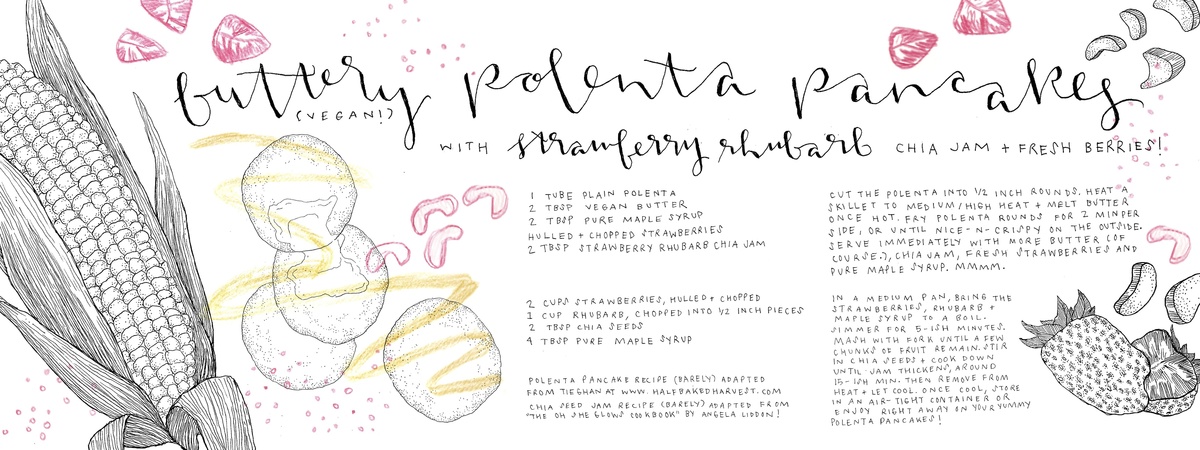 buttery polenta pancakes
(VEGAN!)
WITH strawberry rhubarb CHIA JAM + FRESH BERRIES!
1 TUBE PLAIN POLENTA
2 TBSP VEGAN BUTTER
2 TBSP PURE MAPLE SYRUP
HULLED + CHOPPED STRAWBERRIES
2 TBSP STRAWBERRY RHUBARB CHIA JAM
CUT THE POLENTA INTO 1/2 INCH ROUNDS. HEAT A
SKILLET TO MEDIUM/HIGH HEAT + MELT BUTTER
ONCE HOT. FRY POLENTA ROUNDS FOR 2 MIN PER
SIDE, OR UNTIL NICE-N-CRISPY ON THE OUTSIDE.
SERVE IMMEDIATELY WITH MORE BUTTER (OF
COURSE.), CHIA JAM, FRESH STRAWBERRIES AND
PURE MAPLE SYRUP. MMMM.
2 CUPS STRAWBERRIES, HULLED + CHOPPED
1 CUP RHUBARB, CHOPPED INTO 1/2 INCH PIECES
2 TBSP CHIA SEEDS
4 TBSP PURE MAPLE SYRUP
IN A MEDIUM PAN, BRING THE
STRAWBERRIES, RHUBARB +
MAPLE SYRUP TO A BOIL.
SIMMER FOR 5-ISH MINUTES.
MASH WITH FORK UNTIL A FEW
CHUNKS OF FRUIT REMAIN. STIR
IN CHIA SEEDS + COOK DOWN
UNTIL JAM THICKENS, AROUND
15-ISH MIN. THEN REMOVE FROM
HEAT + LET COOL. ONCE COOL, STORE
IN AN AIR-TIGHT CONTAINER OR
ENJOY RIGHT AWAY ON YOUR YUMMY
POLENTA PANCAKES!
POLENTA PANCAKE RECIPE (BARELY) ADAPTED
FROM TIEGHAN AT WWW.HALFBAKEDHARVEST.COM
CHIA SEED JAM RECIPE (BARELY) ADAPTED FROM
"THE OH SHE GLOWS COOKBOOK" BY ANGELA LIDDON!